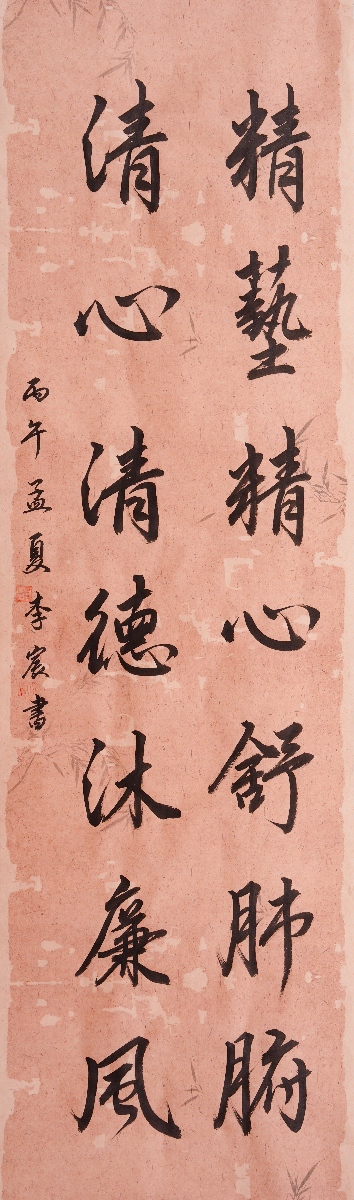 精藝精心舒肺腑
清心清德沐廉風
丙午孟夏李宸書